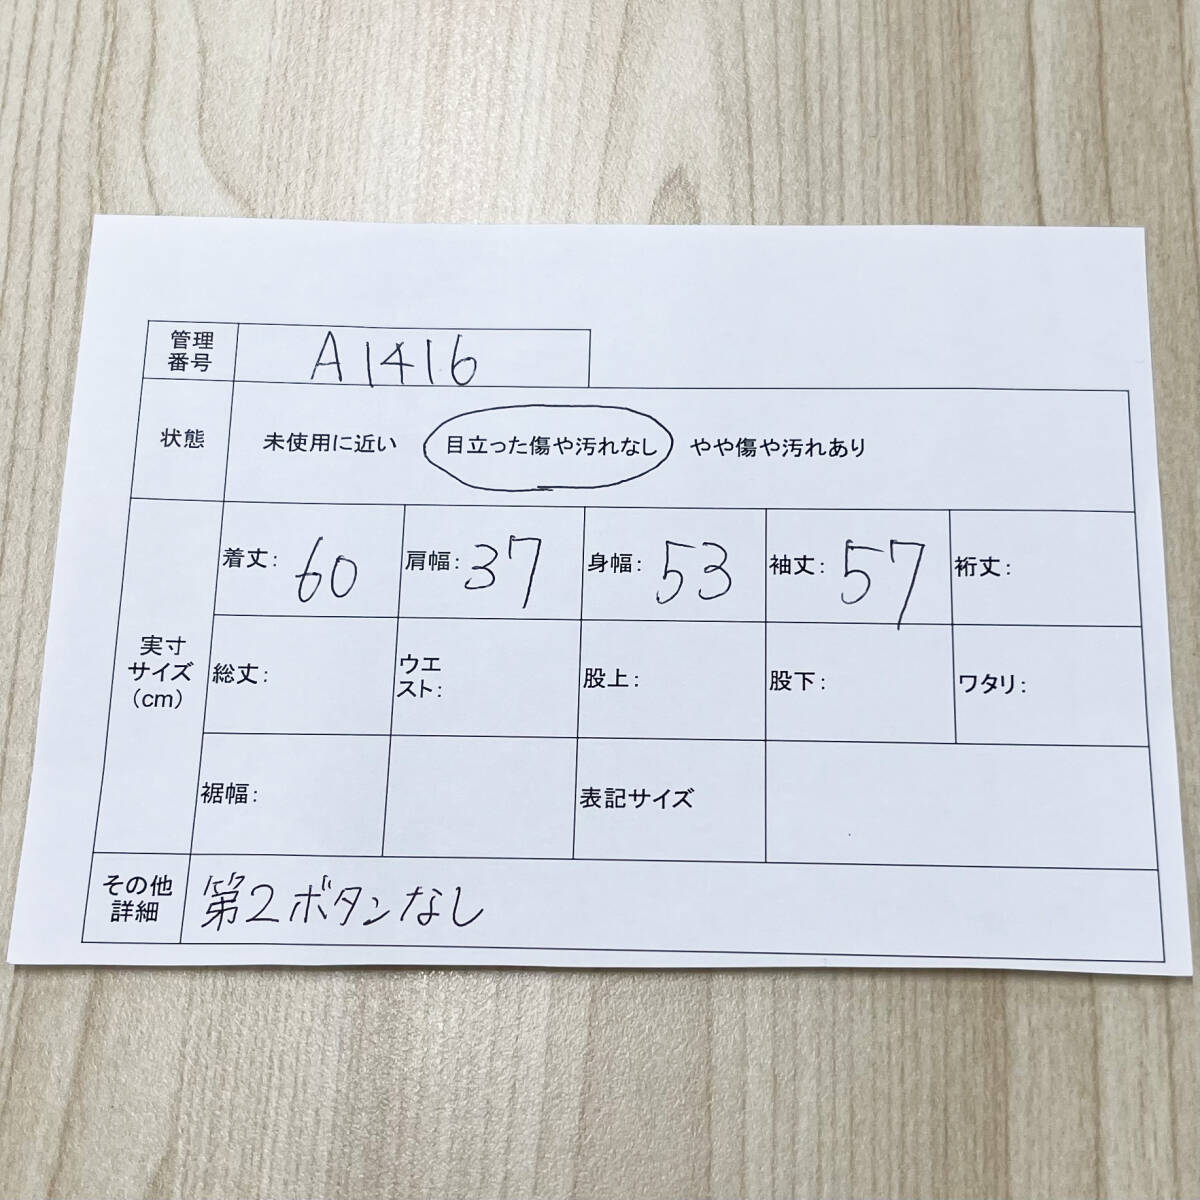 管理
番号
A1416
状態
未使用に近い 目立った傷や汚れなし やや傷や汚れあり
実寸
サイズ
(cm)
着丈: 60 肩幅: 37 身幅: 53 袖丈: 57 裄丈:
総丈: ウエ
スト: 股上: 股下: ワタリ:
裾幅: 表記サイズ
その他
詳細
第2ボタンなし